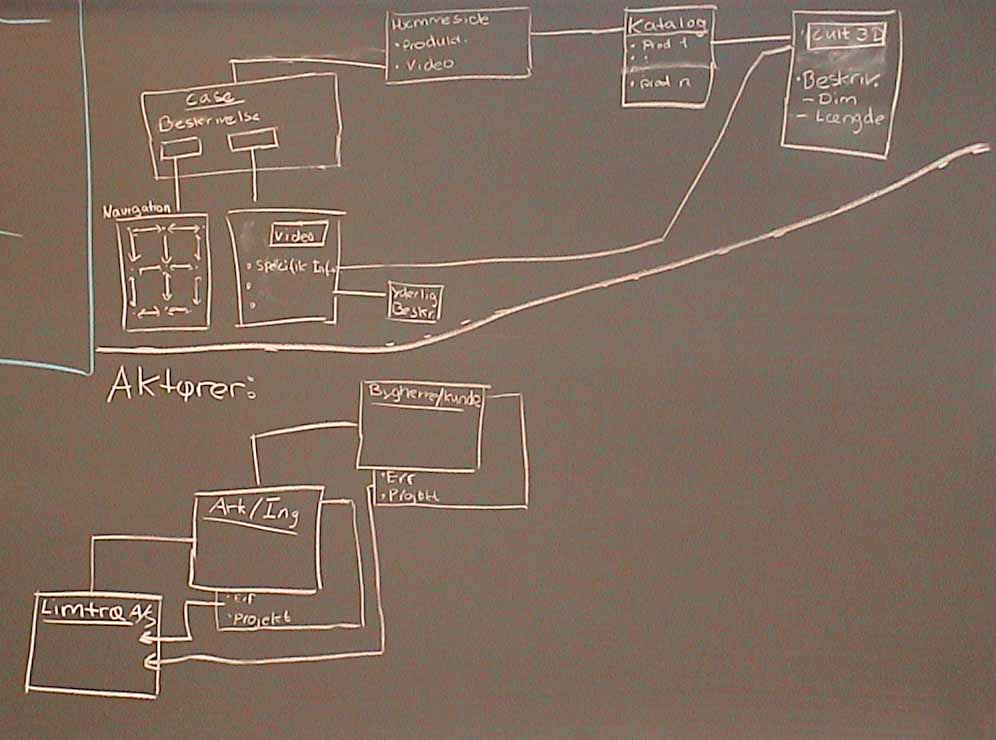 Hjemmeside
• Produkt.
• Video
Katalog
• Prod 1
• :
• Prod n
• Cult 3D
• Beskriv.
- Dim
- Længde
Case
Beskrivelse
Navigation
Video
• Specifik Inf.
•
•
Yderlig
Beskr.
Aktører:
Bygherre/kunde
• Erf
• Projekt
Ark/Ing
• Erf
• Projekt
Limtræ A/S